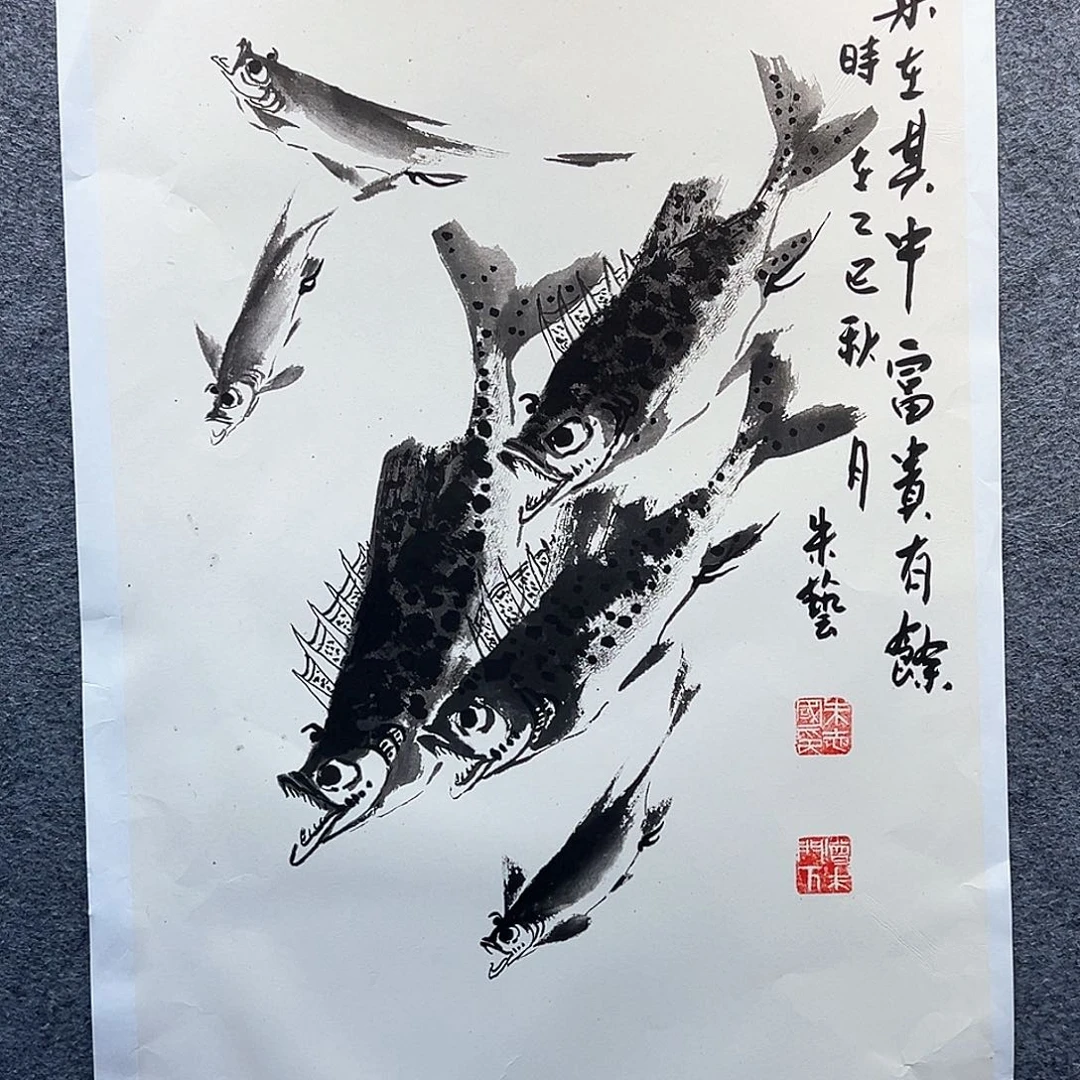 在其中富貴有餘
時在乙巳秋月
朱藝
朱志
國
門下